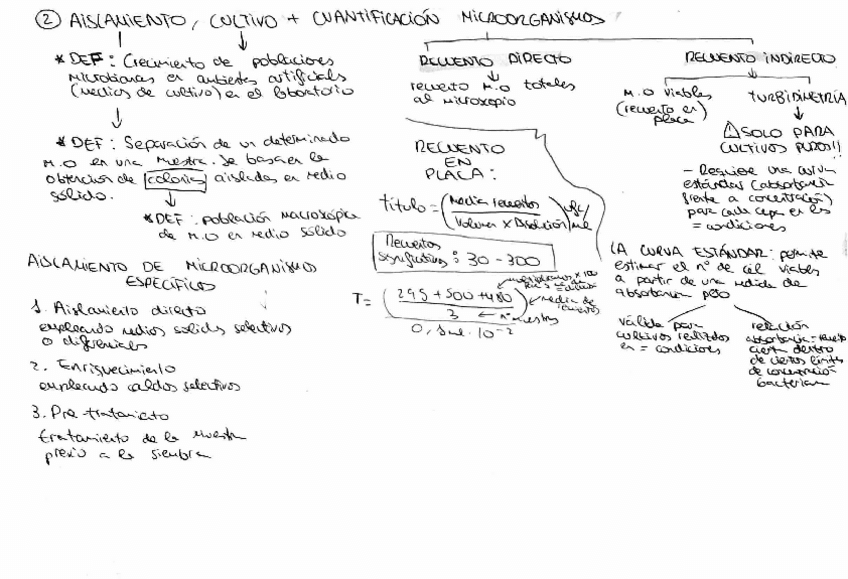 ② AISLAMIENTO, CULTIVO + CUANTIFICACIÓN MICROORGANISMOS
* DEF: Crecimiento de poblaciones
microbianas en ambientes artificiales
(medios de cultivo) en el laboratorio
* DEF: Separación de un determinado
M.O en una muestra. Se basa en la
obtención de colonias aisladas en medio
sólido.
* DEF: población macroscópica
de M.O en medio sólido
AISLAMIENTO DE MICROORGANISMOS
ESPECÍFICOS
1. Aislamiento directo
empleando medios solidos selectivos
o diferenciales
2. Enriquecimiento
empleando caldos selectivos
3. Pre tratamiento
tratamiento de la muestra
previo a la siembra
RECUENTO DIRECTO
recuento M.O totales
al microscopio
RECUENTO
EN
PLACA:
título = (Media recuentos / Volumen x Disolución) ufc/ml
Recuentos
significativos: 30-300
multiplicamos x 100
T = (295 + 500 + 480 / 3) media de
← nº muestras
0,1 ml · 10⁻²
RECUENTO INDIRECTO
M.O viables
(recuento en
placa)
TURBIDIMETRÍA
⚠ SOLO PARA
CULTIVOS PUROS!!
- Requiere una curva
estándar (absorbancia
frente a concentración)
para cada cepa en las
= condiciones
LA CURVA ESTÁNDAR: permite
estimar el nº de cél viables
a partir de una medida de
absorbancia pero
válida para
cultivos realizados
en = condiciones
relación
absorbancia-recuento
cierta dentro
de ciertos límites
de concentración
bacteriana